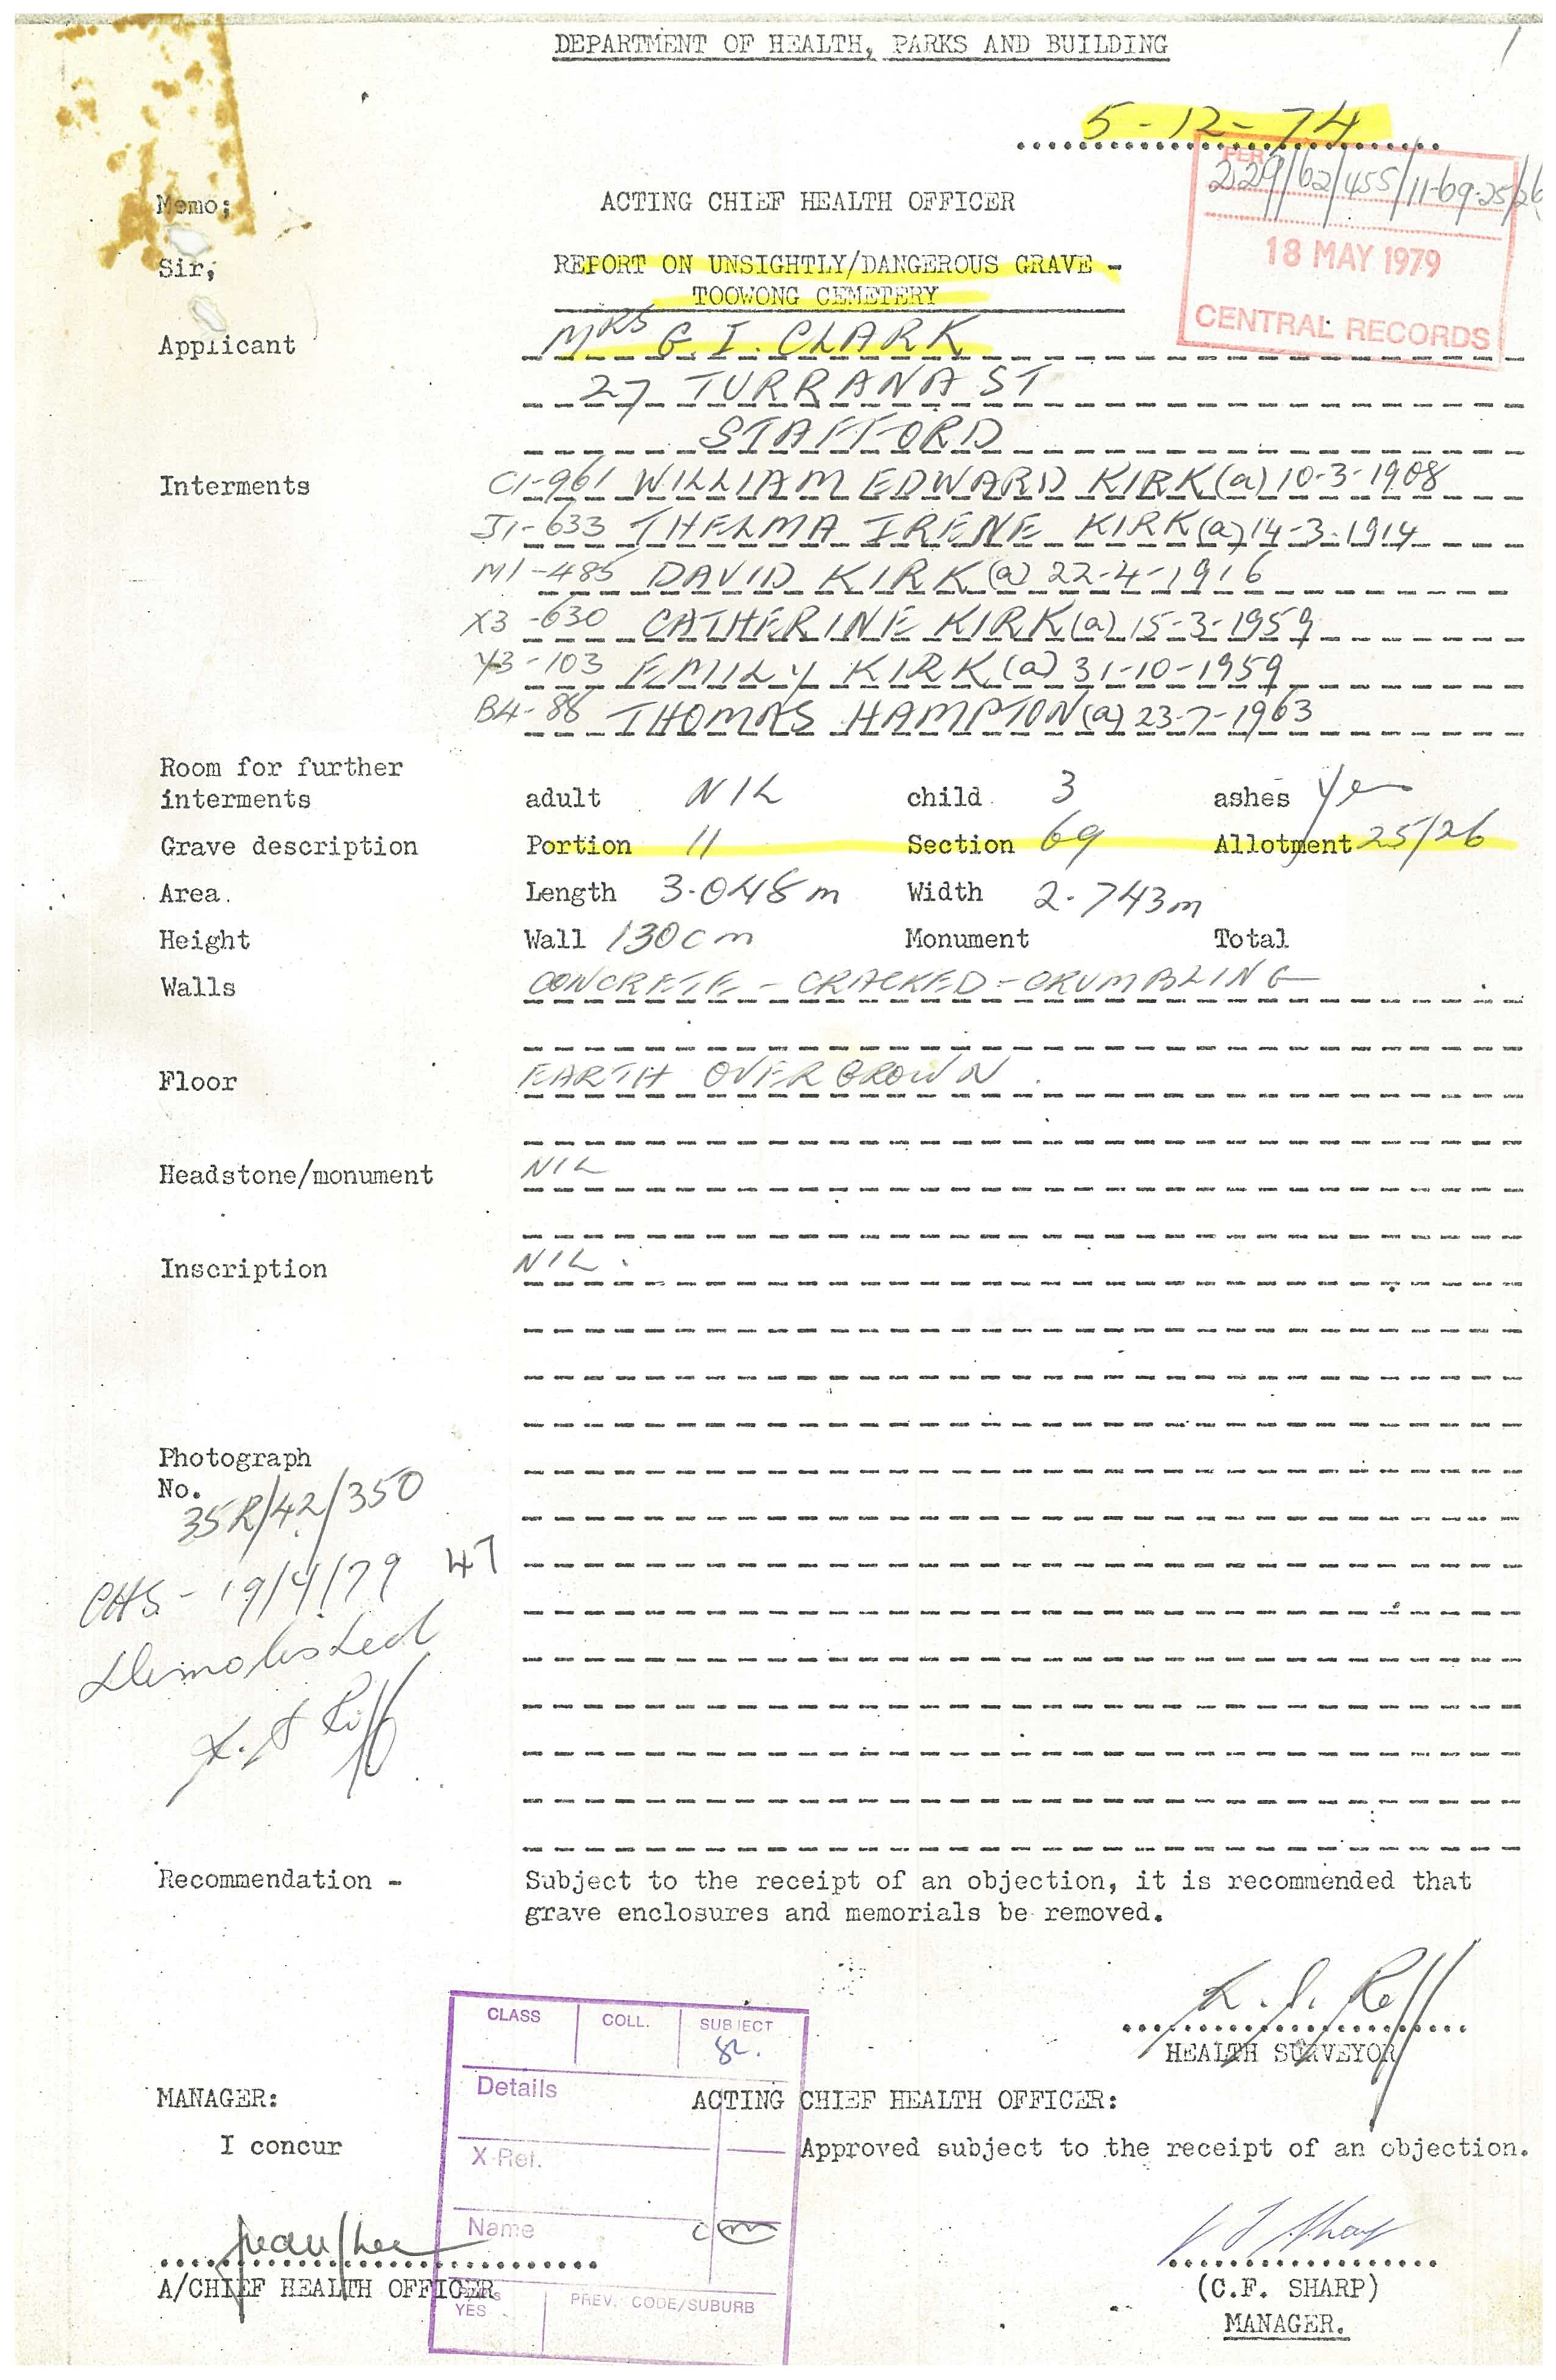 DEPARTMENT OF HEALTH, PARKS AND BUILDING
1
5-12-74
PER
229/62/455/11-69-25/26
18 MAY 1979
CENTRAL RECORDS
Memo; ACTING CHIEF HEALTH OFFICER
Sir, REPORT ON UNSIGHTLY/DANGEROUS GRAVE -
TOOWONG CEMETERY
Applicant MRS G. I. CLARK
27 TURRANA ST
STAFFORD
Interments C1-961 WILLIAM EDWARD KIRK (a) 10-3-1908
J1-633 THELMA IRENE KIRK (a) 14-3-1914
M1-485 DAVID KIRK (a) 22-4-1916
X3-630 CATHERINE KIRK (a) 15-3-1959
Y3-103 EMILY KIRK (a) 31-10-1959
B4-88 THOMAS HAMPTON (a) 23-7-1963
Room for further
interments adult NIL child 3 ashes yes
Grave description Portion 11 Section 69 Allotment 25/26
Area. Length 3.048m Width 2.743m
Height Wall 130cm Monument Total
Walls CONCRETE - CRACKED - CRUMBLING
Floor EARTH OVERGROWN.
Headstone/monument NIL
Inscription NIL.
Photograph
No.
35R/42/350
CHS - 19/4/79 47
Demolished
Recommendation - Subject to the receipt of an objection, it is recommended that
grave enclosures and memorials be removed.
HEALTH SURVEYOR
CLASS COLL. SUBJECT
Details
X-Ref.
Name
YES PREV. CODE/SUBURB
MANAGER: ACTING CHIEF HEALTH OFFICER:
I concur Approved subject to the receipt of an objection.
A/CHIEF HEALTH OFFICER (C.F. SHARP)
MANAGER.